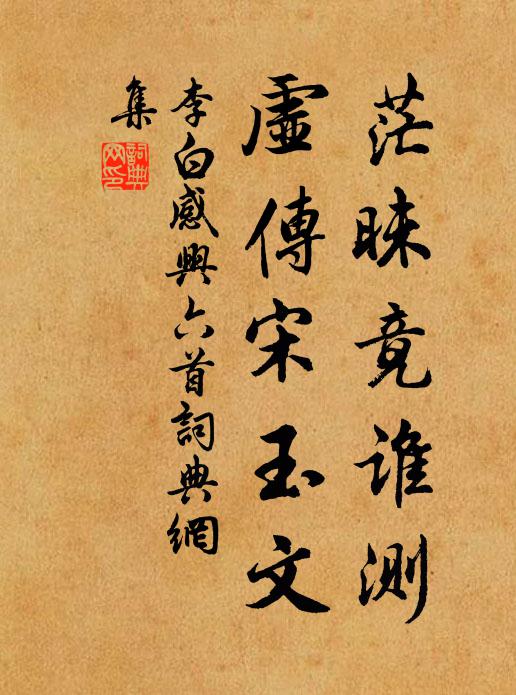 茫昧竟誰測
虛傳宋玉文
李白感興六首詞典網
集
詞典網印